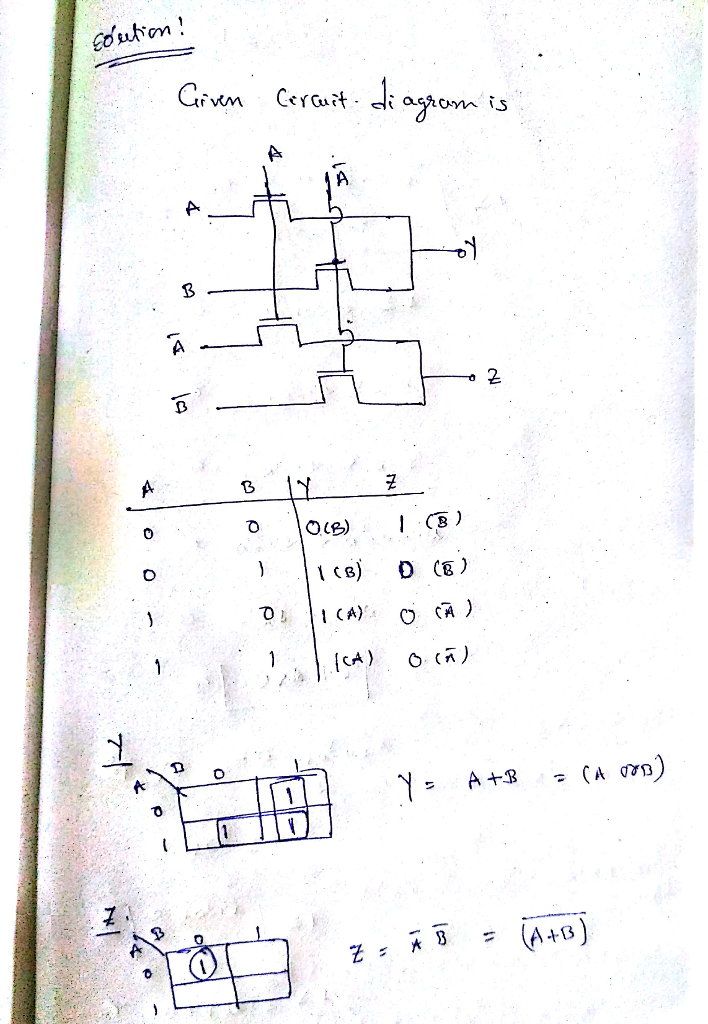 Solution!
Given Circuit diagram is
A
Ā
A
Y
B
Ā
Z
B̄
A B Y Z
0 0 0(B) 1 (B̄)
0 1 1(B) 0 (B̄)
1 0 1(A) 0 (Ā)
1 1 1(A) 0 (Ā)
Y
B 0 1
A
0 1
1 1 1
Y = A+B = (A or B)
Z
B 0 1
A
0 1
1
Z = Ā B̄ = (A+B)̅